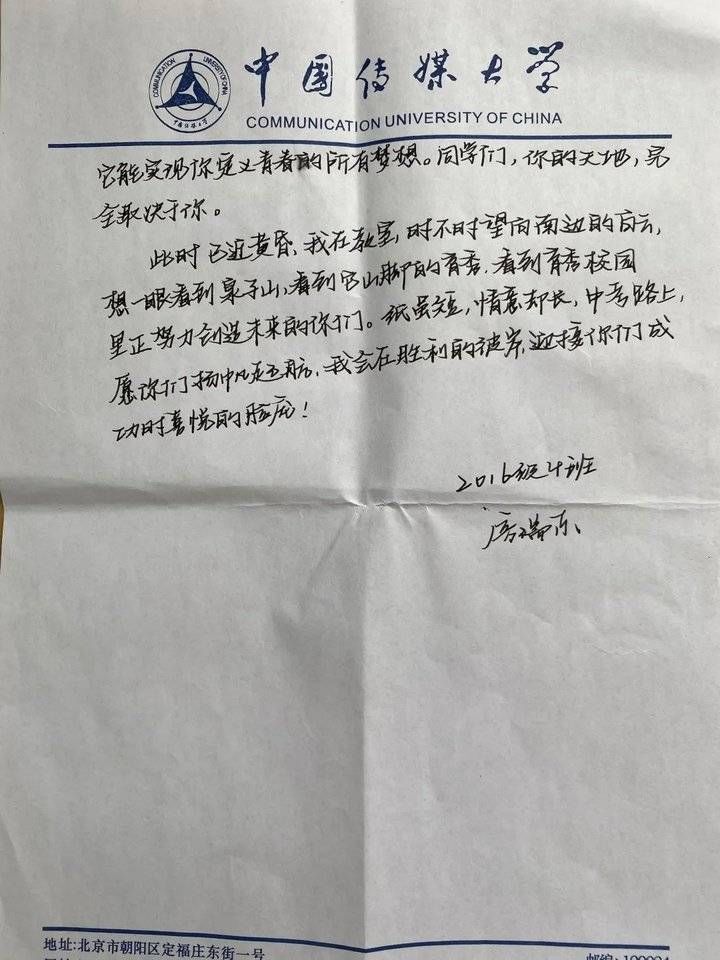 中国传媒大学
COMMUNICATION UNIVERSITY OF CHINA
COMMUNICATION UNIVERSITY OF CHINA
中国传媒大学
它能实现你定义青春的所有梦想。同学们，你的天地，完
全取决于你。
此时已近黄昏，我在教室，时不时望向南边的白云，
想一眼看到泉子山，看到它山脚的育秀，看到育秀校园
里正努力创造未来的你们。纸虽短，情意却长，中考路上，
愿你们扬帆起航，我会在胜利的彼岸，迎接你们成
功时喜悦的脸庞！
2016级4班
瑞东
地址:北京市朝阳区定福庄东街一号